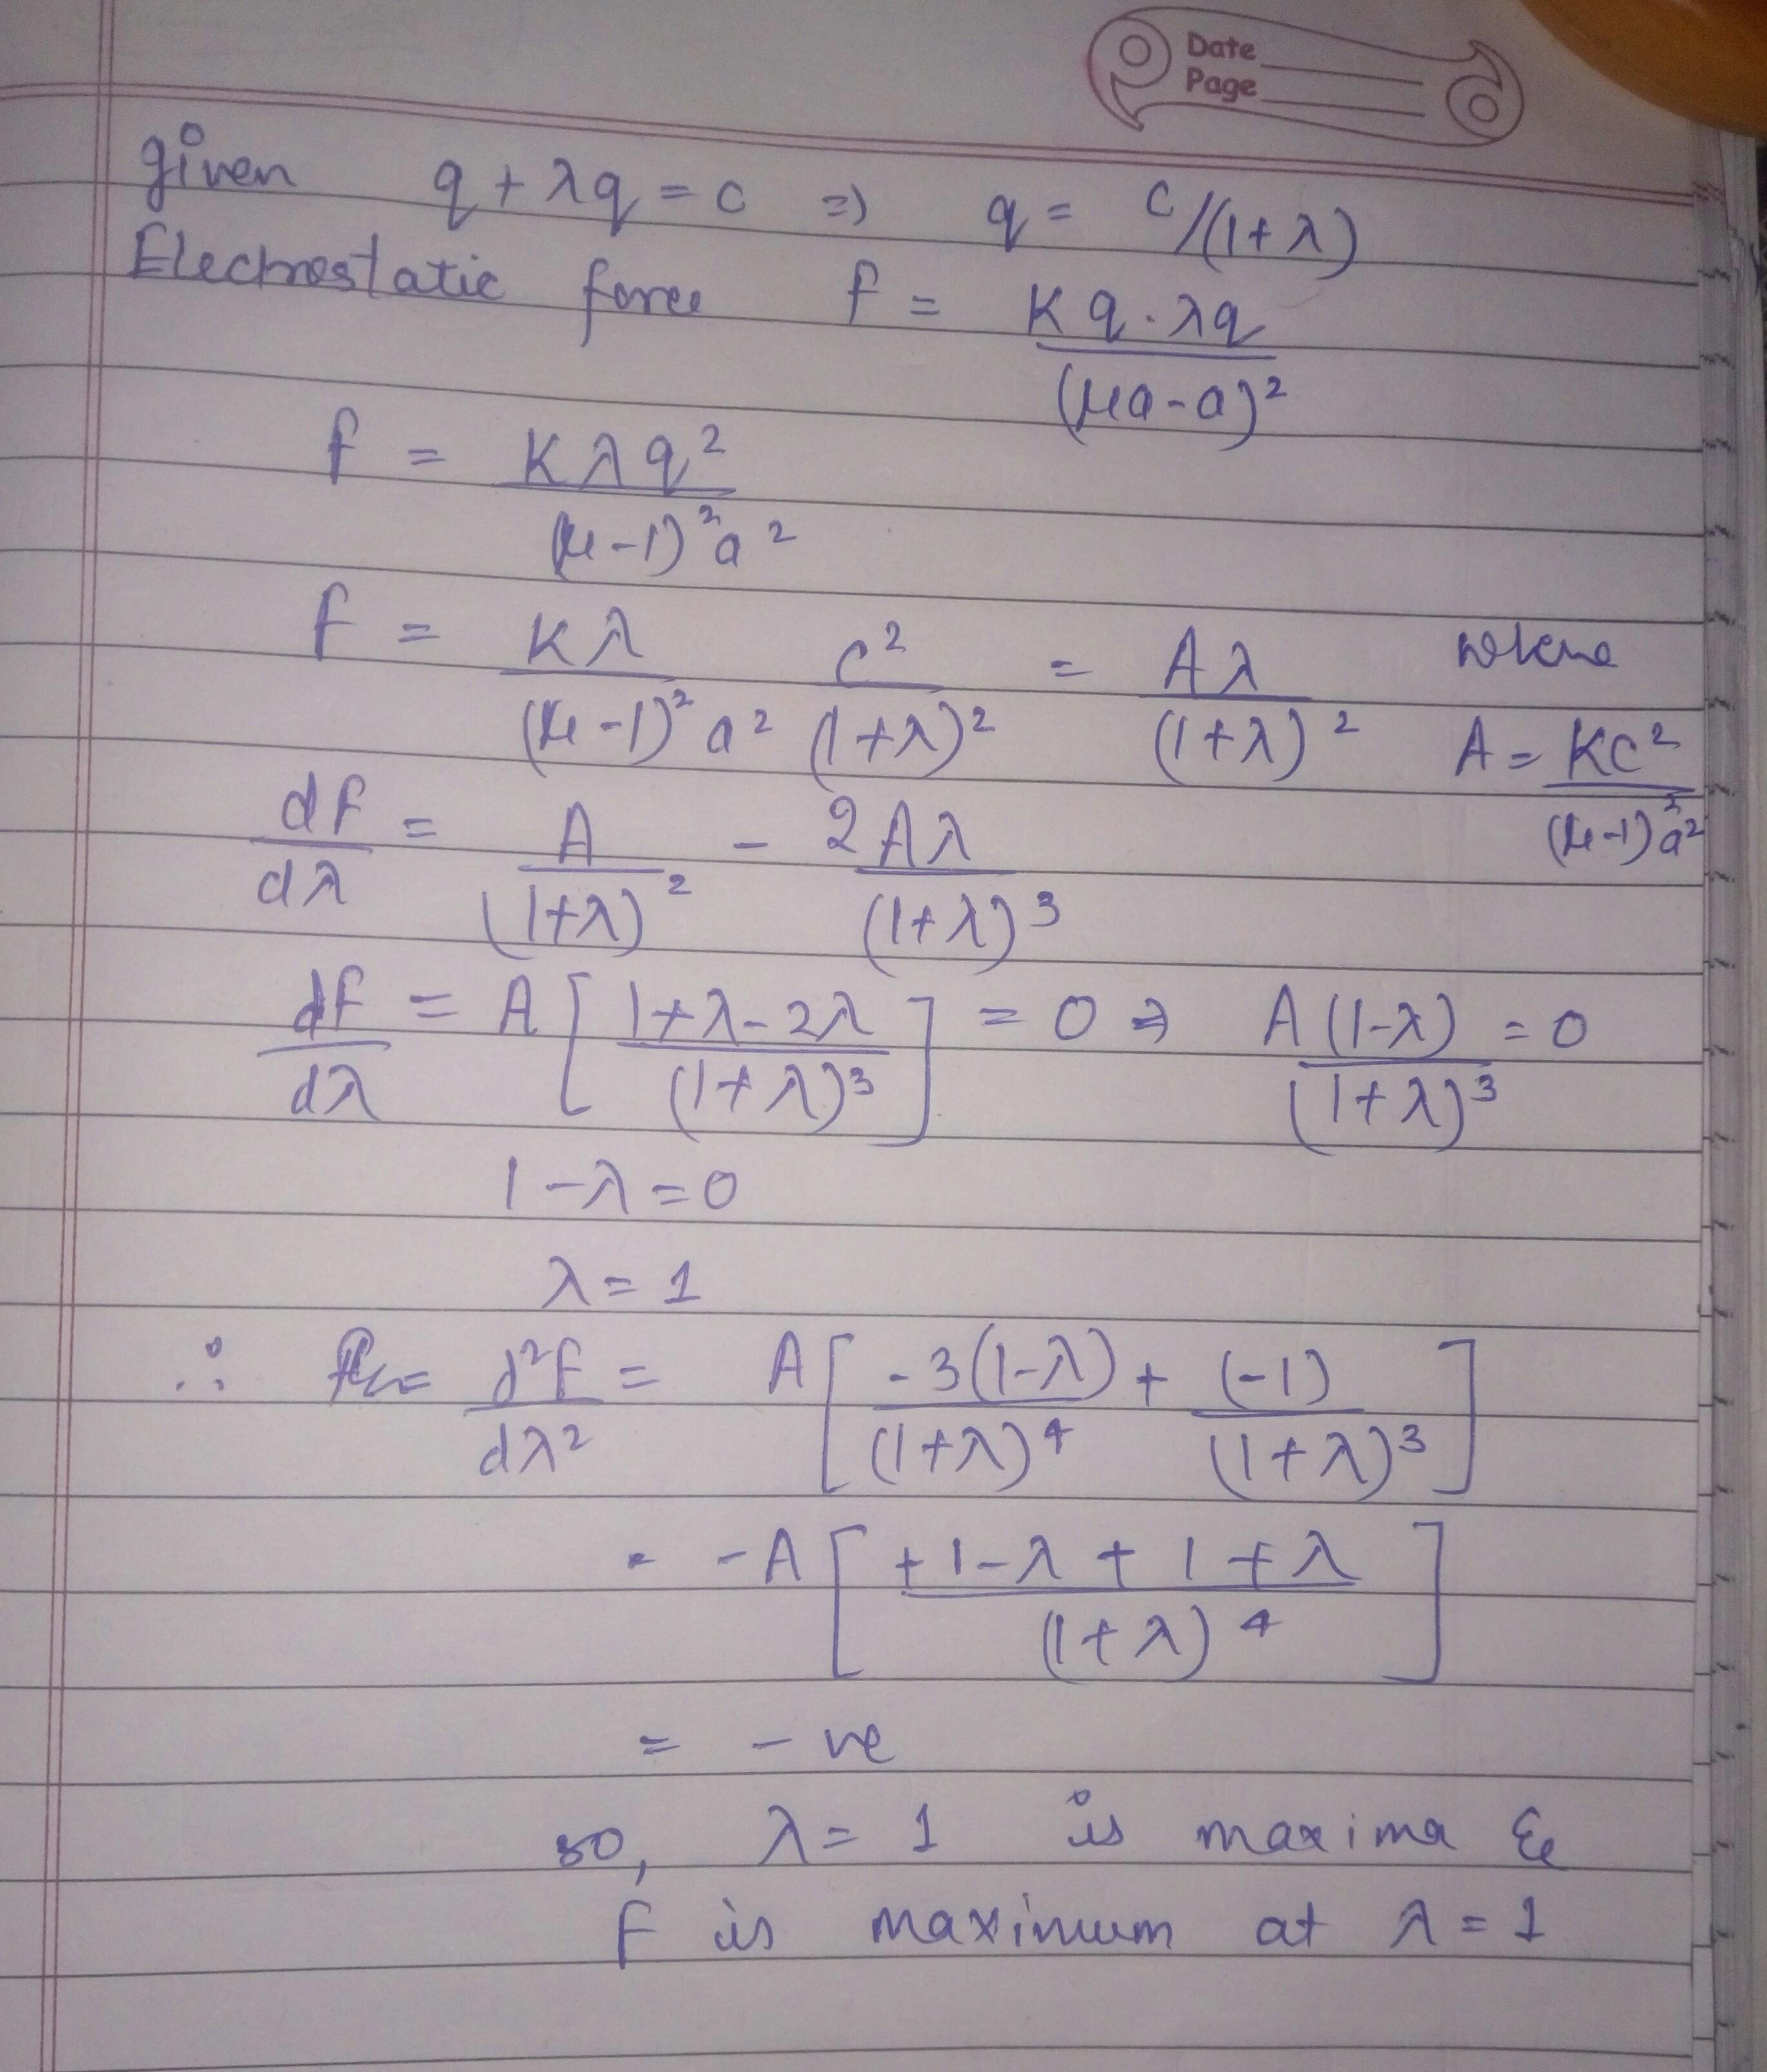 Date
Page
given q + λq = c ⇒ q = c/(1+λ)
Electrostatic force f = Kq.λq / (μa-a)²
f = Kλq² / (μ-1)²a²
f = Kλ / (μ-1)²a² c² / (1+λ)² = Aλ / (1+λ)² where A = KC² / (μ-1)²a²
df/dλ = A / (1+λ)² - 2Aλ / (1+λ)³
df/dλ = A [ 1+λ-2λ / (1+λ)³ ] = 0 ⇒ A(1-λ) / (1+λ)³ = 0
1-λ=0
λ = 1
∴ d²f/dλ² = A [ -3(1-λ) / (1+λ)⁴ + (-1) / (1+λ)³ ]
= -A [ +1-λ + 1+λ / (1+λ)⁴ ]
= -ve
so, λ = 1 is maxima &
f is maximum at λ = 1